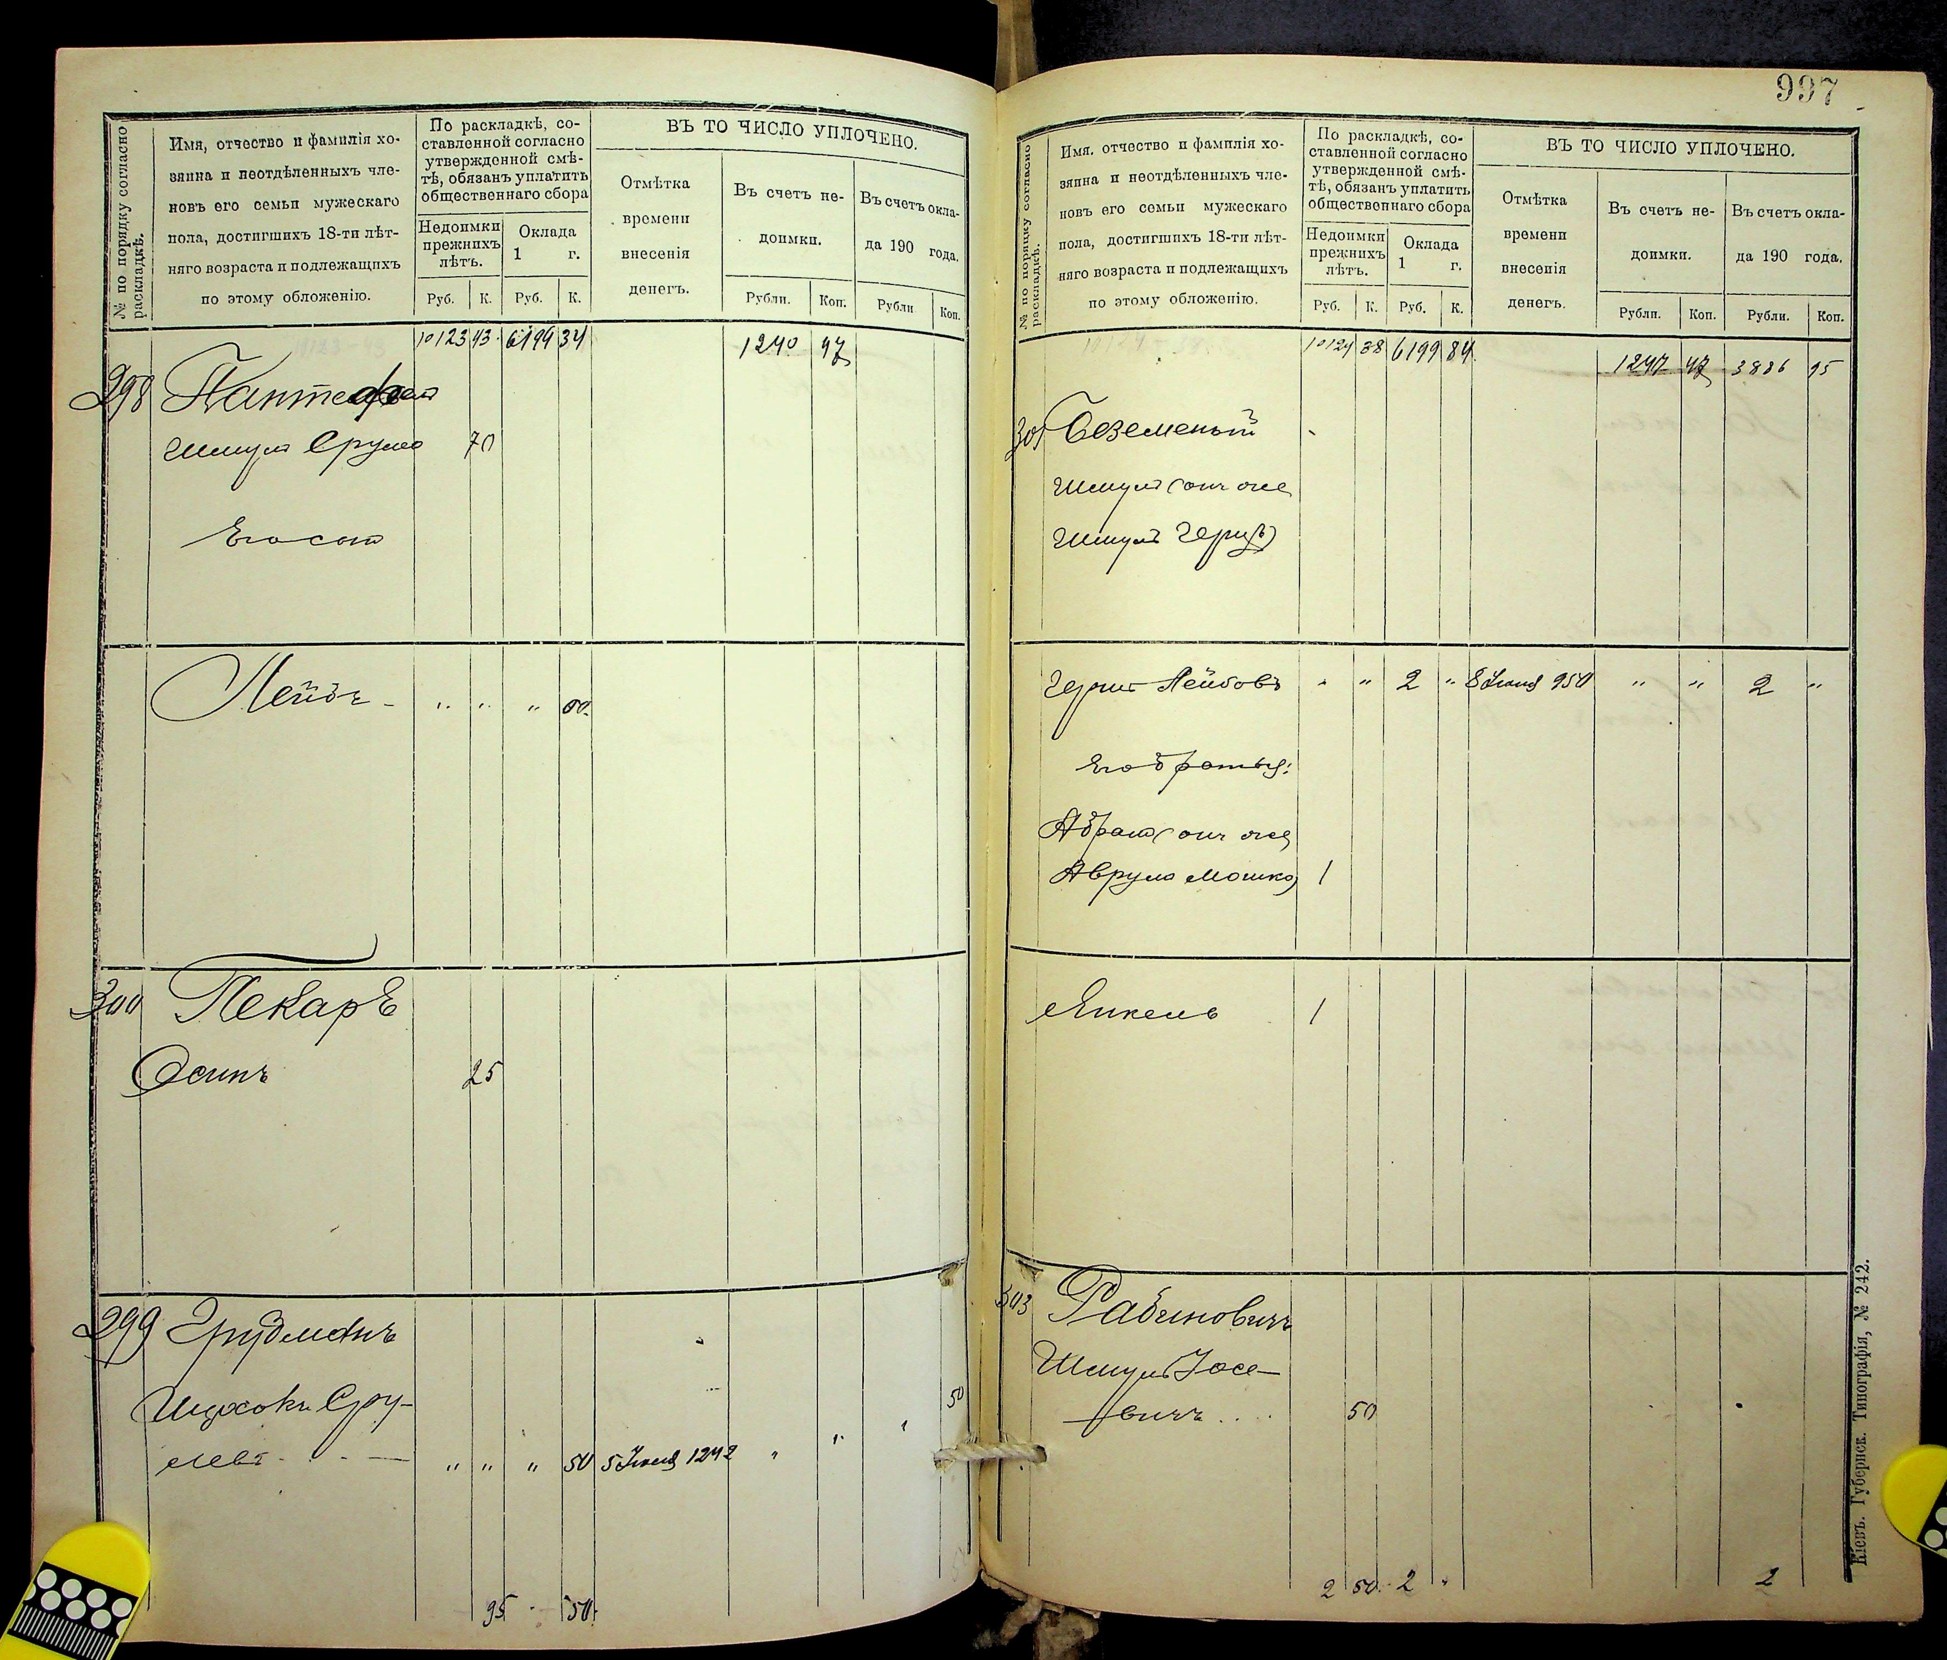 997
№ по порядку согласно раскладкѣ.
Имя, отчество и фамилія хо-
зяина и неотдѣленныхъ чле-
новъ его семьи мужескаго
пола, достигшихъ 18-ти лѣт-
няго возраста и подлежащихъ
по этому обложенію.
По раскладкѣ, со-
ставленной согласно
утвержденной смѣ-
тѣ, обязанъ уплатить
общественнаго сбора
Недоимки
прежнихъ
лѣтъ.
Оклада
1 г.
Руб. К. Руб. К.
ВЪ ТО ЧИСЛО УПЛОЧЕНО.
Отмѣтка
времени
внесенія
денегъ.
Въ счетъ не-
доимки.
Въ счетъ окла-
да 190 года.
Рубли. Коп. Рубли Коп.
10123 43 6199 34 1240 47
298
Шмулъ Срулев 70
Его сын
Лейбъ - " " " 50
300 Пекарь
Осипъ 25
299 Грудманъ
Ицхокъ Сру-
левъ - - — " " " 50 5 Іюля 1242 " " " 50
95 - 50
№ по порядку согласно раскладкѣ.
Имя, отчество и фамилія хо-
зяина и неотдѣленныхъ чле-
новъ его семьи мужескаго
пола, достигшихъ 18-ти лѣт-
няго возраста и подлежащихъ
по этому обложенію.
По раскладкѣ, со-
ставленной согласно
утвержденной смѣ-
тѣ, обязанъ уплатить
общественнаго сбора
Недоимки
прежнихъ
лѣтъ.
Оклада
1 г.
Руб. К. Руб. К.
ВЪ ТО ЧИСЛО УПЛОЧЕНО.
Отмѣтка
времени
внесенія
денегъ.
Въ счетъ не-
доимки.
Въ счетъ окла-
да 190 года.
Рубли. Коп. Рубли. Коп.
10124 38 6199 84 1247 47 3886 95
301 Беземеный
Шмулъ (онъ же
Шмулъ Герцъ)
Гершъ Лейбовъ " " 2 " 8 Іюня 950 " " 2 "
Его братья:
Абрам (онъ же
Аврум Мошко) 1
Янкель 1
303 Рабиновичъ
Шмулъ Іосе-
вичъ 50
2 50 2 " 2
Кіевъ. Губернск. Типографія, № 242.